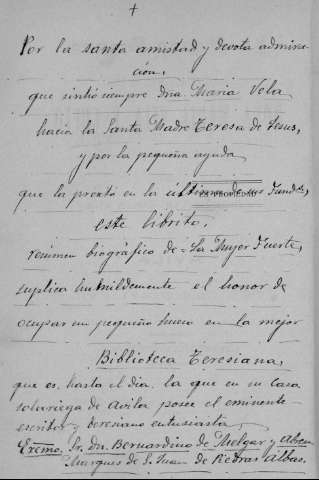 +
Por la santa amistad y devota admira-
ción,
que sintió siempre dña Maria Vela
hacia la Santa Madre Teresa de Jesus,
y por la pequeña ayuda
que la prestó en la última de sus Fundes,
este librito,
resúmen biográfico de "La Mujer Fuerte,
suplica humildemente el honor de
ocupar un pequeño hueco en la mejor
Biblioteca Teresiana,
que es, hasta el dia, la que en su Casa
solariega de Avila posee el eminente
escritor y teresiano entusiasta,
Excmo. Sr. dn. Bernardino de Melgar y Abreu
Marques de S. Juan de Piedras Albas.